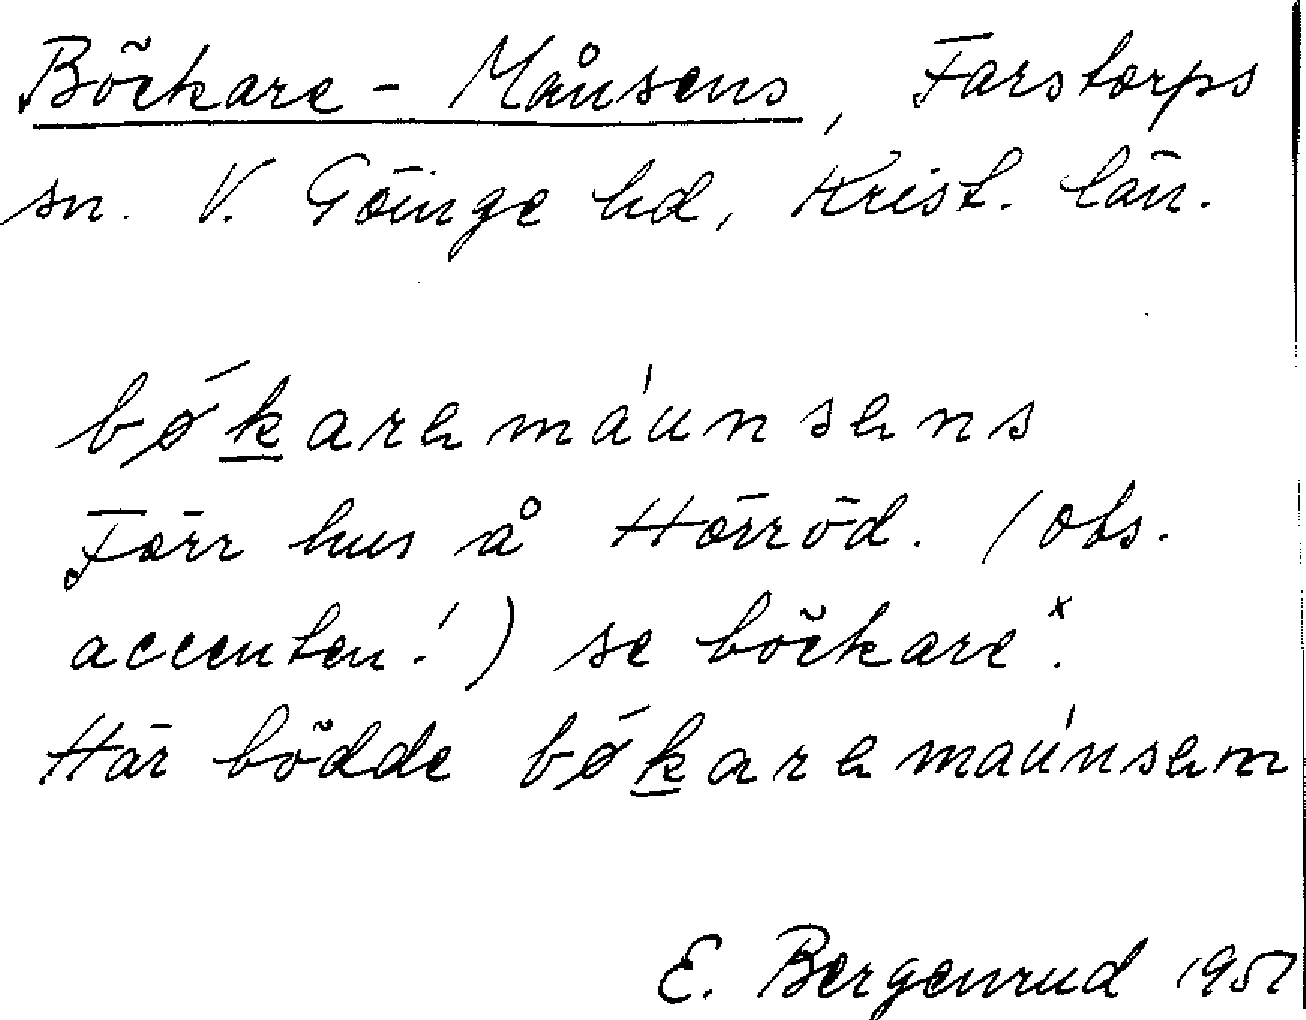 Böckare-Månsens, Farstorps
sn. V. Göinge hd, Krist. län.
bǿkaremáunsens
Förr hus å Hörröd. (obs.
accenten!) se böckare x.
Här bodde bǿkaremaúnsen
E. Bergenrud 1957